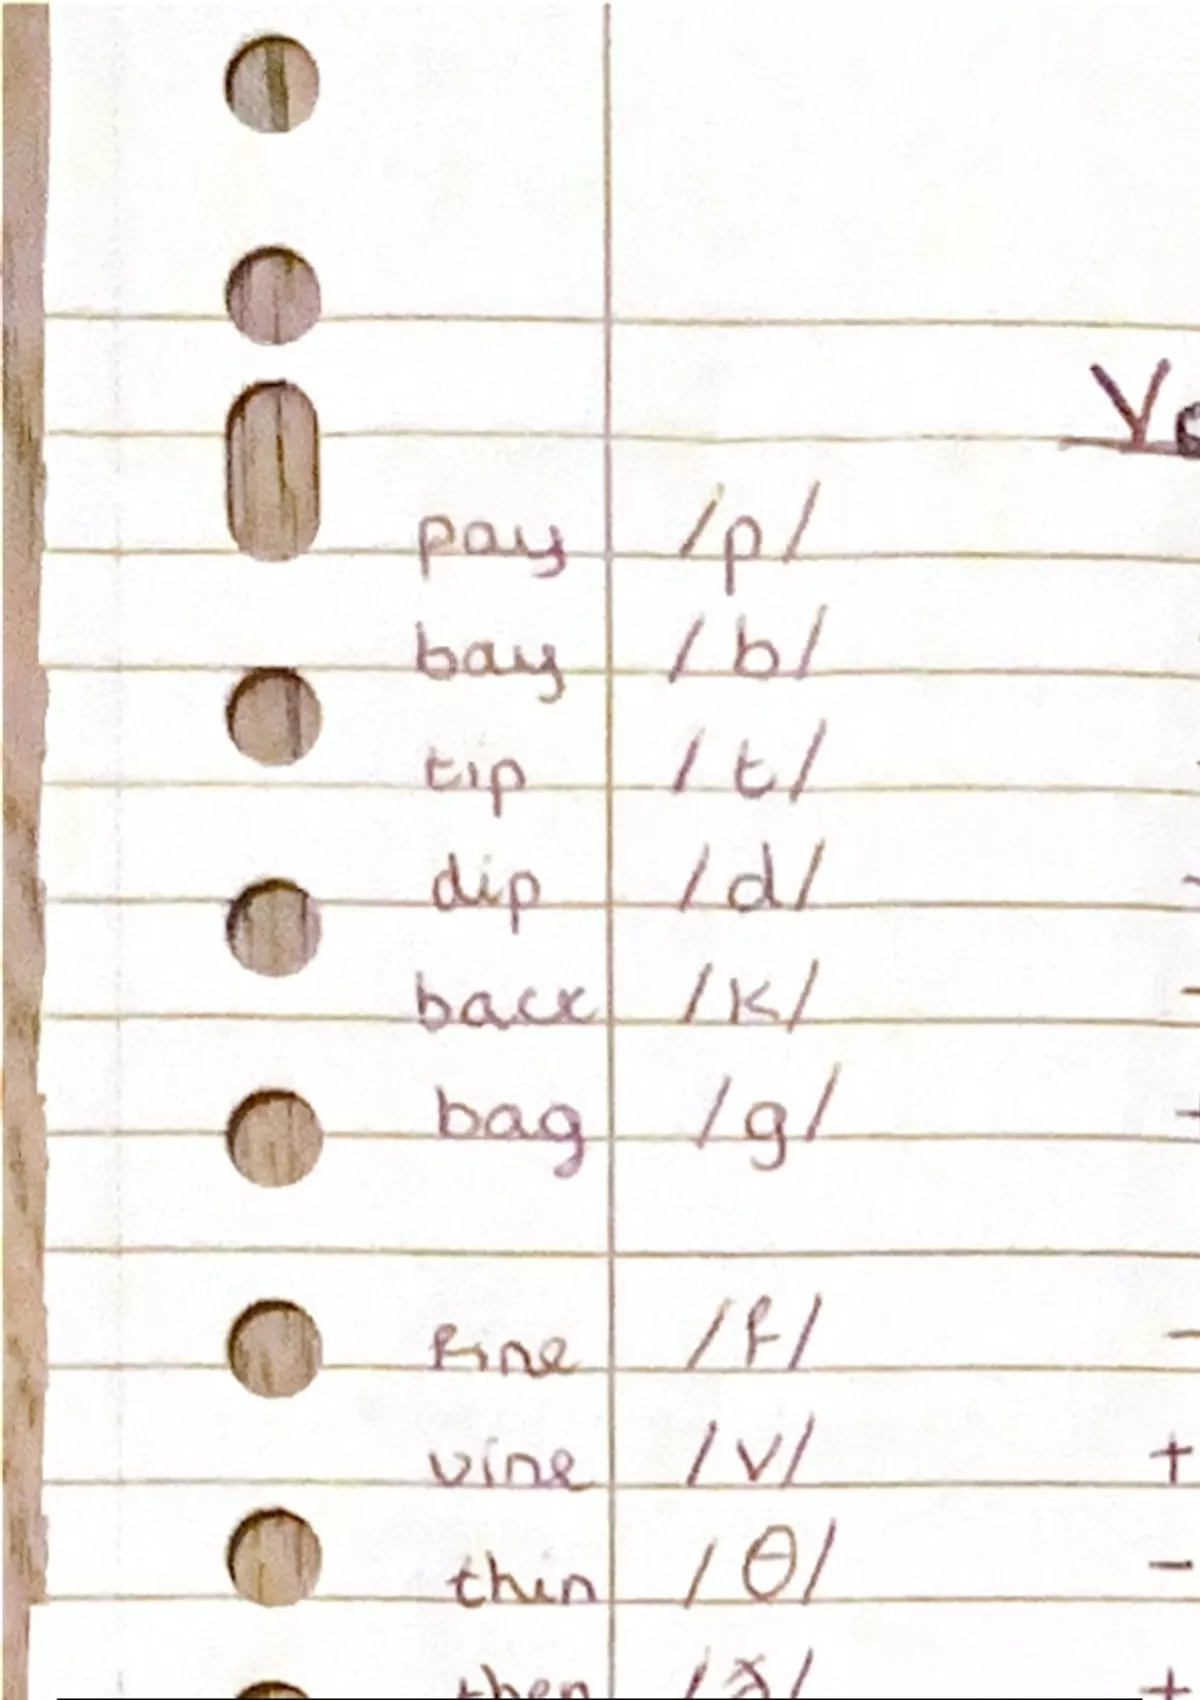 pay /p/
bay /b/
tip /t/
dip /d/
back /k/ -
bag /g/ +
fine /f/ -
vine /v/ +
thin /θ/ -
then /ð/ +